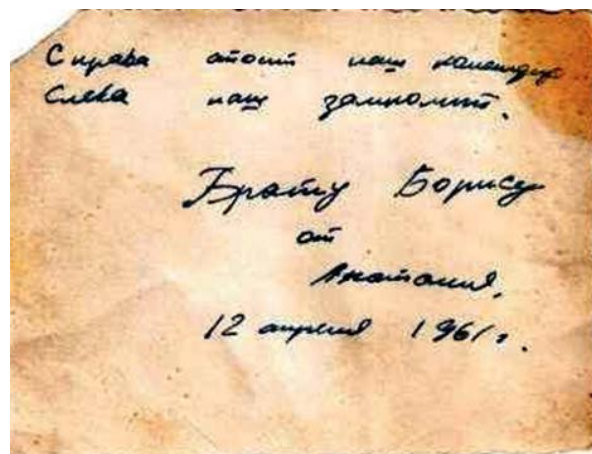 Справа стоит наш командир
Слева наш замполит.
Брату Борису
от
Анатолия.
12 апреля 1961г.